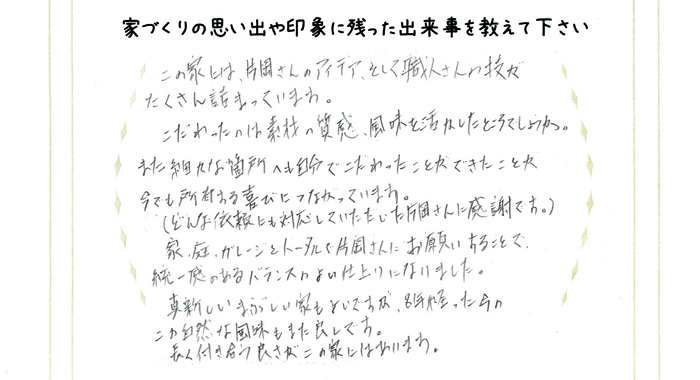 家づくりの思い出や印象に残った出来事を教えて下さい
この家には、片岡さんのアイデア、そして職人さんの技が
たくさん詰まっています。
こだわったのは素材の質感、風味を活かしたところでしょうか。
また細かな箇所へも自分でこだわったことができたことが
今でも所有する喜びにつながっています。
(どんな依頼にも対応していただいた片岡さんに感謝です。)
家、庭、ガレージとトータルで片岡さんにお願いすることで、
統一感のあるバランスのよい仕上りになりました。
真新しいまぶしい家もよいですが、8年経った今の
この自然な風味もまた良しです。
長く付き合う良さがこの家にはあります。